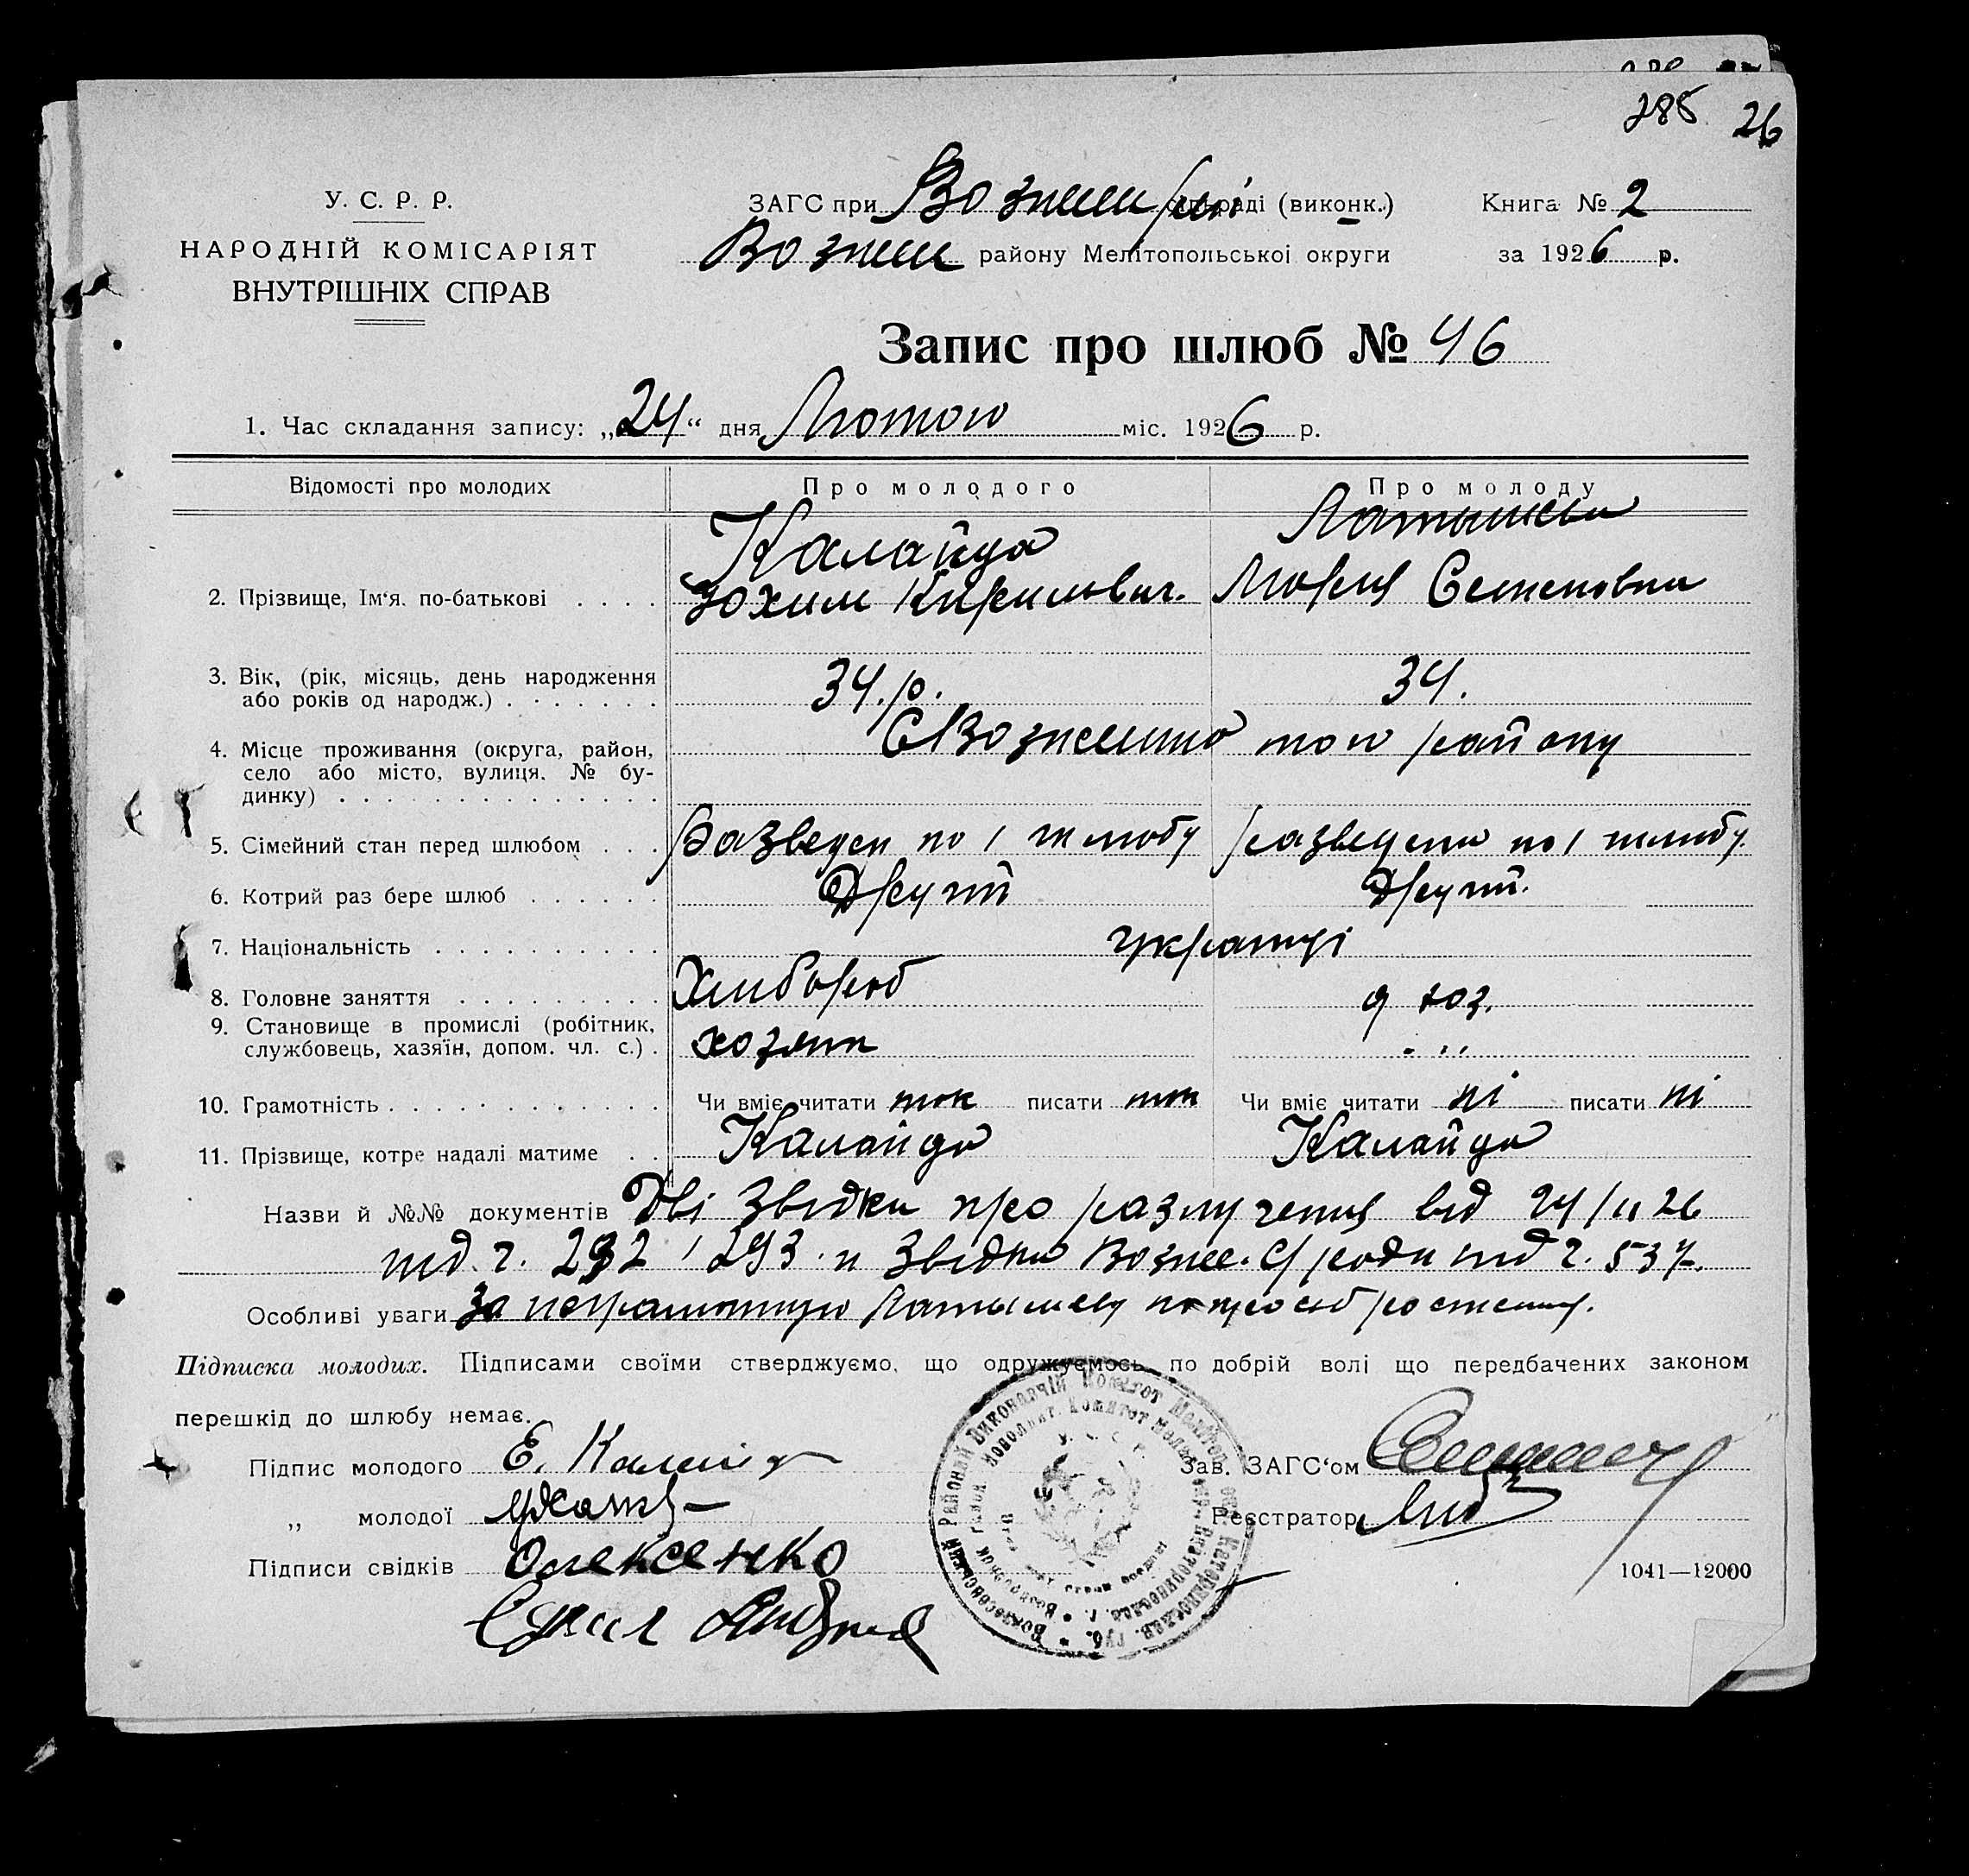 285 26
У. С. Р. Р.
НАРОДНІЙ КОМІСАРІЯТ
ВНУТРІШНІХ СПРАВ
ЗАГС при Вознен раді (виконк.)
Вознен району Мелітопольської округи
Книга № 2
за 1926 р.
Запис про шлюб № 46
1. Час складання запису: „24“ дня Лютого міс. 1926 р.
Відомості про молодих
Про молодого
Про молоду
2. Прізвище, Ім‘я, по-батькові
Калайда
Юхим Кирилович.
Латышева
Мария Семеновна
3. Вік, (рік, місяць, день народження
або років од народж.)
34.р.
34.
4. Місце проживання (округа, район,
село або місто, вулиця, № бу-
динку)
того району
5. Сімейний стан перед шлюбом
Разведен по 1 шлюбу
разведена по 1 шлюбу.
6. Котрий раз бере шлюб
Другий
Другий.
7. Національність
українці
8. Головне заняття
Хлибороб
д хоз.
9. Становище в промислі (робітник,
службовець, хазяїн, допом. чл. с.)
хозяин
"
10. Грамотність
Чи вміє читати так писати так
Чи вміє читати ні писати ні
11. Прізвище, котре надалі матиме
Калайда
Калайда
Назви й №№ документів Дві Звідки про разлучения від 24/II 26
під ч. 292 і 293 и Звідка Вознес. С/ради під ч. 537.
Особливі уваги За неграмотную Латышеву
Підписка молодих. Підписами своїми стверджуємо, що одружуємось по добрій волі що передбачених законом
перешкід до шлюбу немає.
Підпис молодого Е. Калайда
„ молодої
Підписи свідків Олексенко
Зав. ЗАГС‘ом
Реєстратор
1041—12000